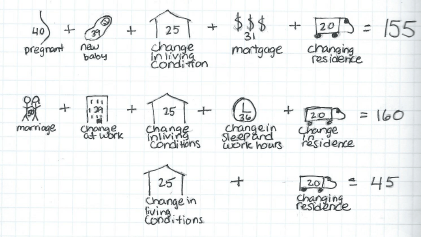 40 + 39 + 25 + $$$ 31 + 20 = 155
pregnant new baby change in living condition mortgage changing residence
+ 39 + 25 + 36 + 20 = 160
marriage change at work change in living conditions change in sleep and work hours change in residence
25 + 20 = 45
change in living conditions. changing residence